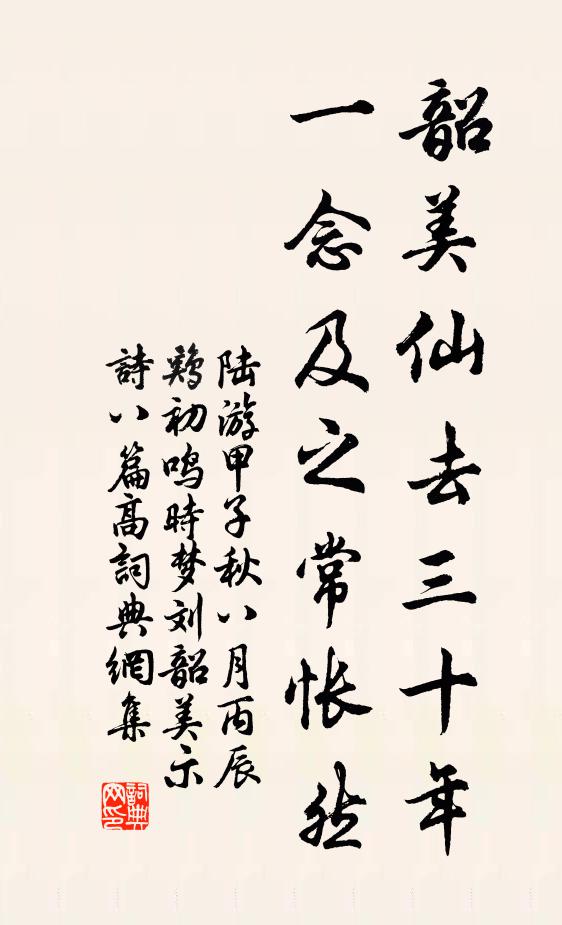 韶美仙去三十年
一念及之常怅然
陆游甲子秋八月丙辰
鸡初鸣時梦刘韶美示
詩八篇高詞典網集
詞典网印